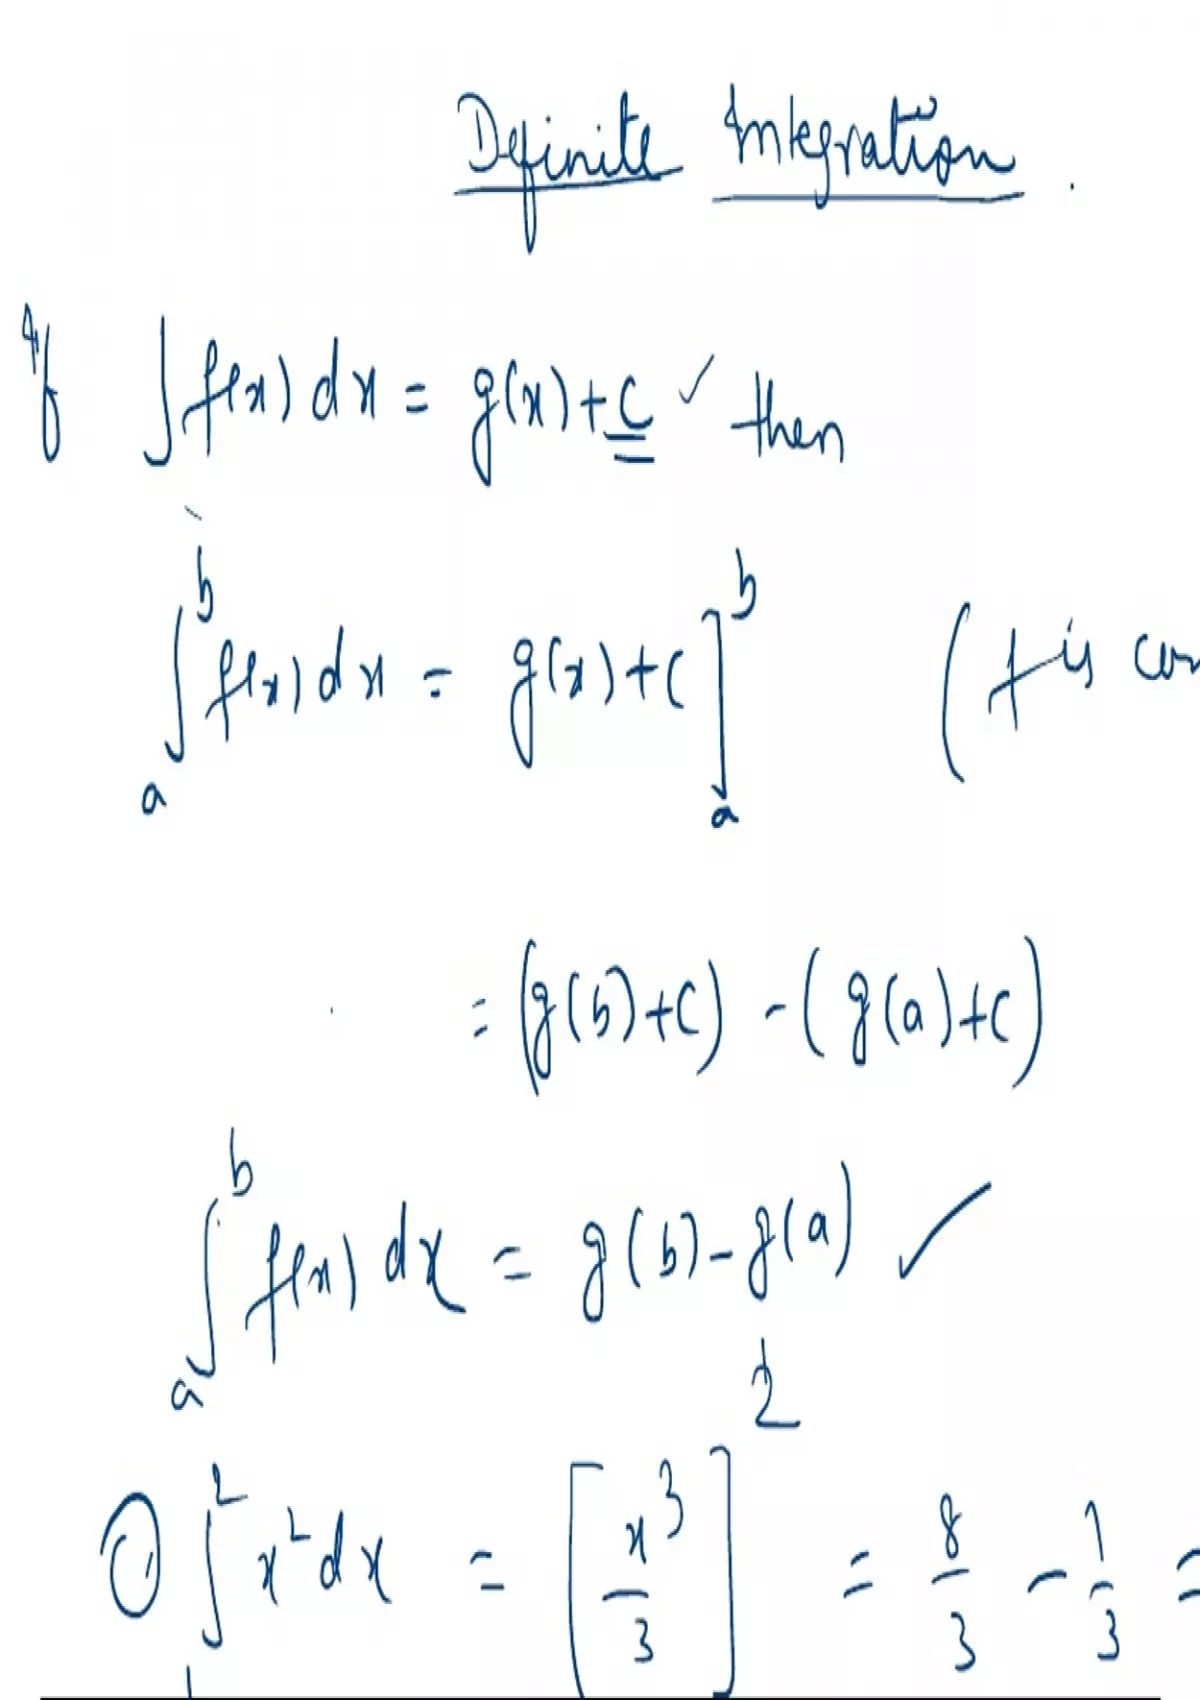 Definite Integration .
If ∫ f(x) dx = g(x) + c ✓ then
∫_a^b f(x) dx = g(x) + c ]_a^b ( f is con
= (g(b) + c) - (g(a) + c)
∫_a^b f(x) dx = g(b) - g(a) ✓
① ∫_1^2 x² dx = [ x³/3 ]^2 = 8/3 - 1/3 =